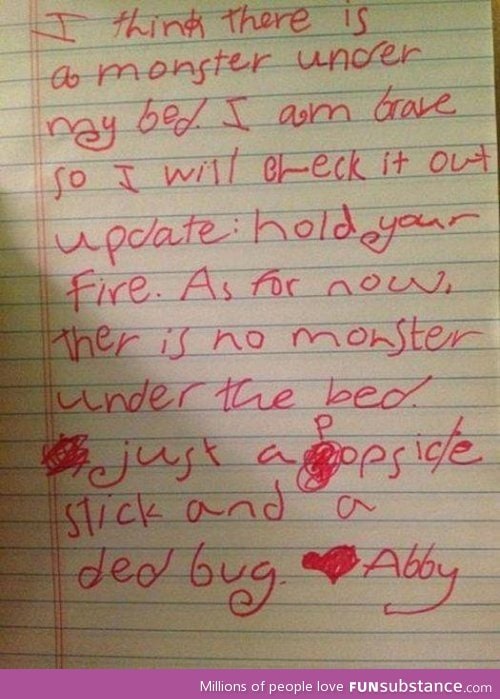 I think there is
a monster under
may bed. I am brave
so I will check it out
update: hold your
fire. As for now,
ther is no monster
under the bed.
just a popsicle
stick and a
ded bug. ❤Abby
Millions of people love FUNsubstance.com